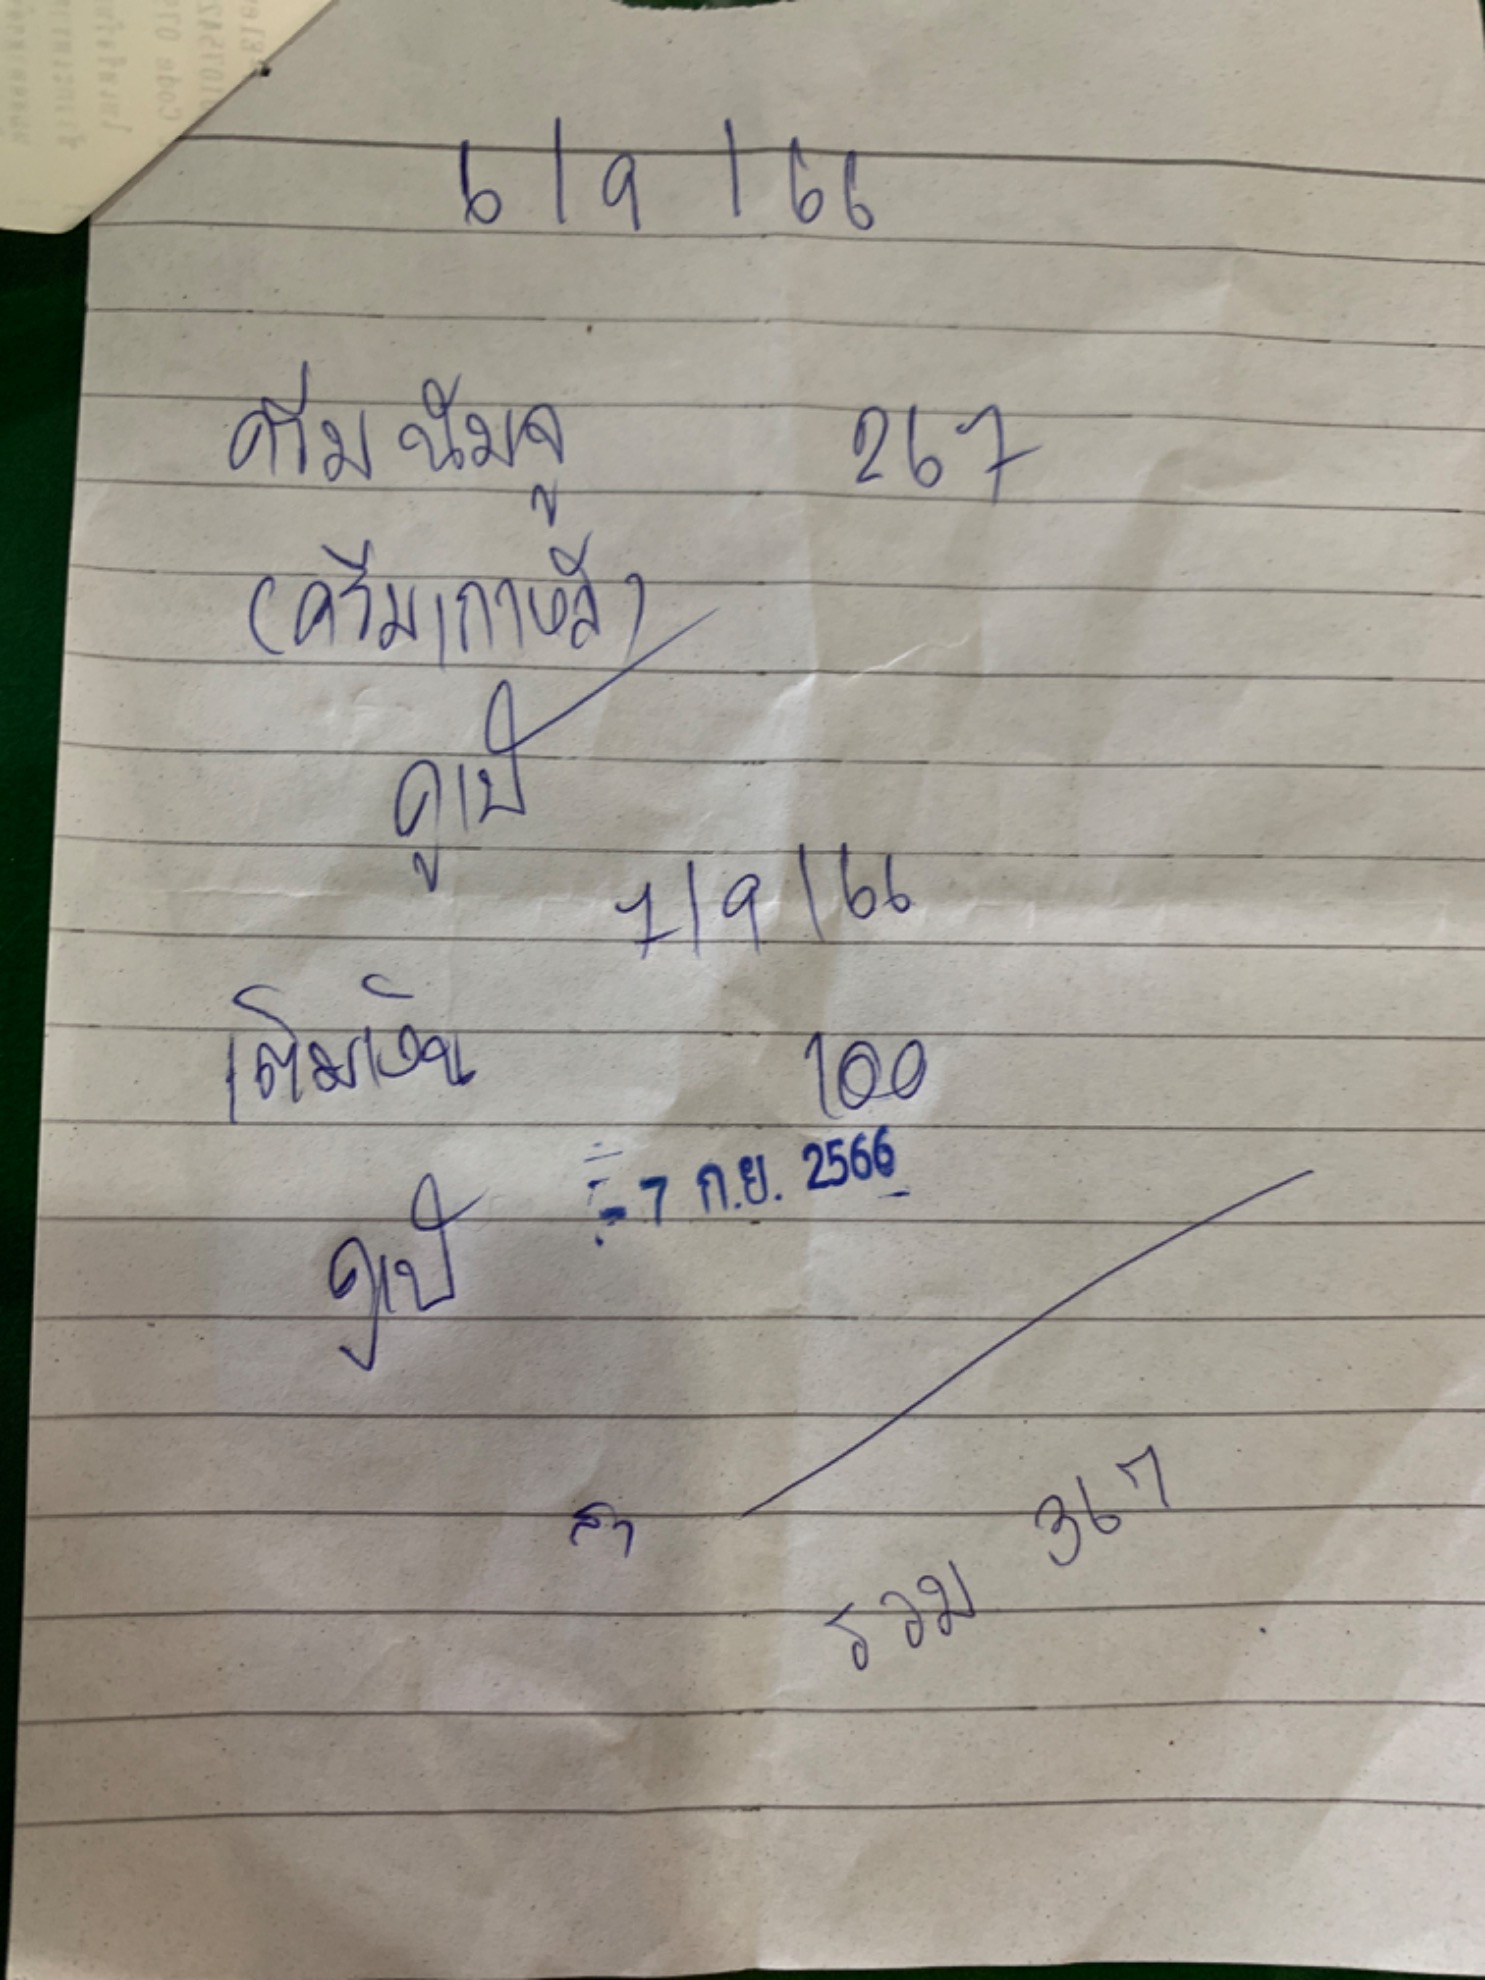 6/9/66
ครีม นัมจู 267
(ครีมเกาหลี)
ดูเป้
7/9/66
เติมเงิน 100
-7 ก.ย. 2566
ดูเป้
รวม 367